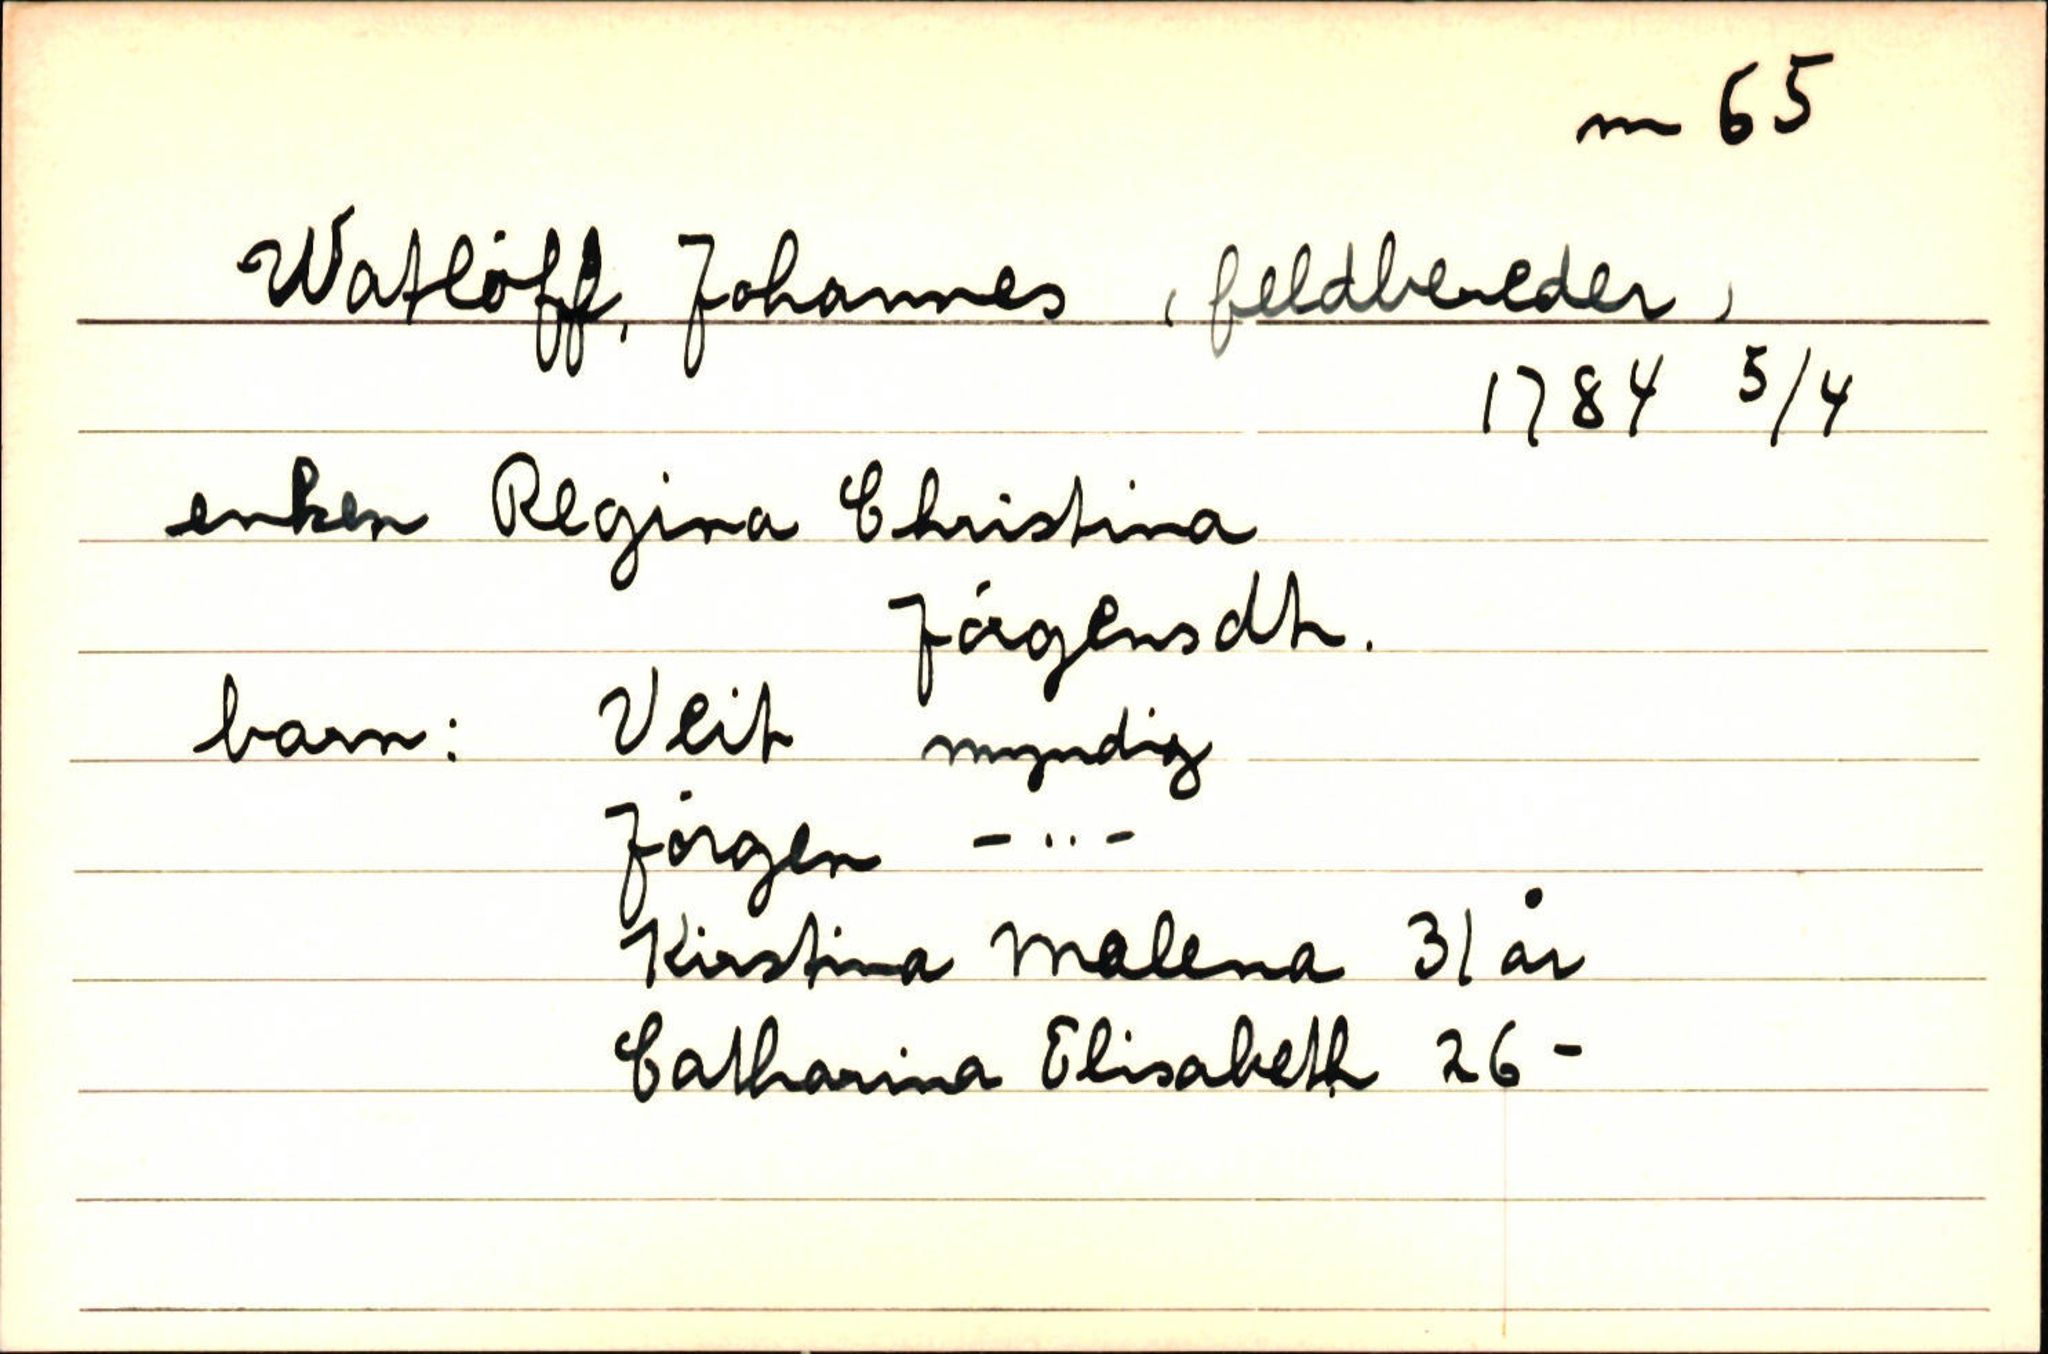 m 65
Watlöff, Johannes (feldbereder)
1784 5/4
enken Regina Christina
Jörgensdtr.
barn: Veit myndig
Jörgen -"-
Kirstina Malena 31 år
Catharina Elisabeth 26 -